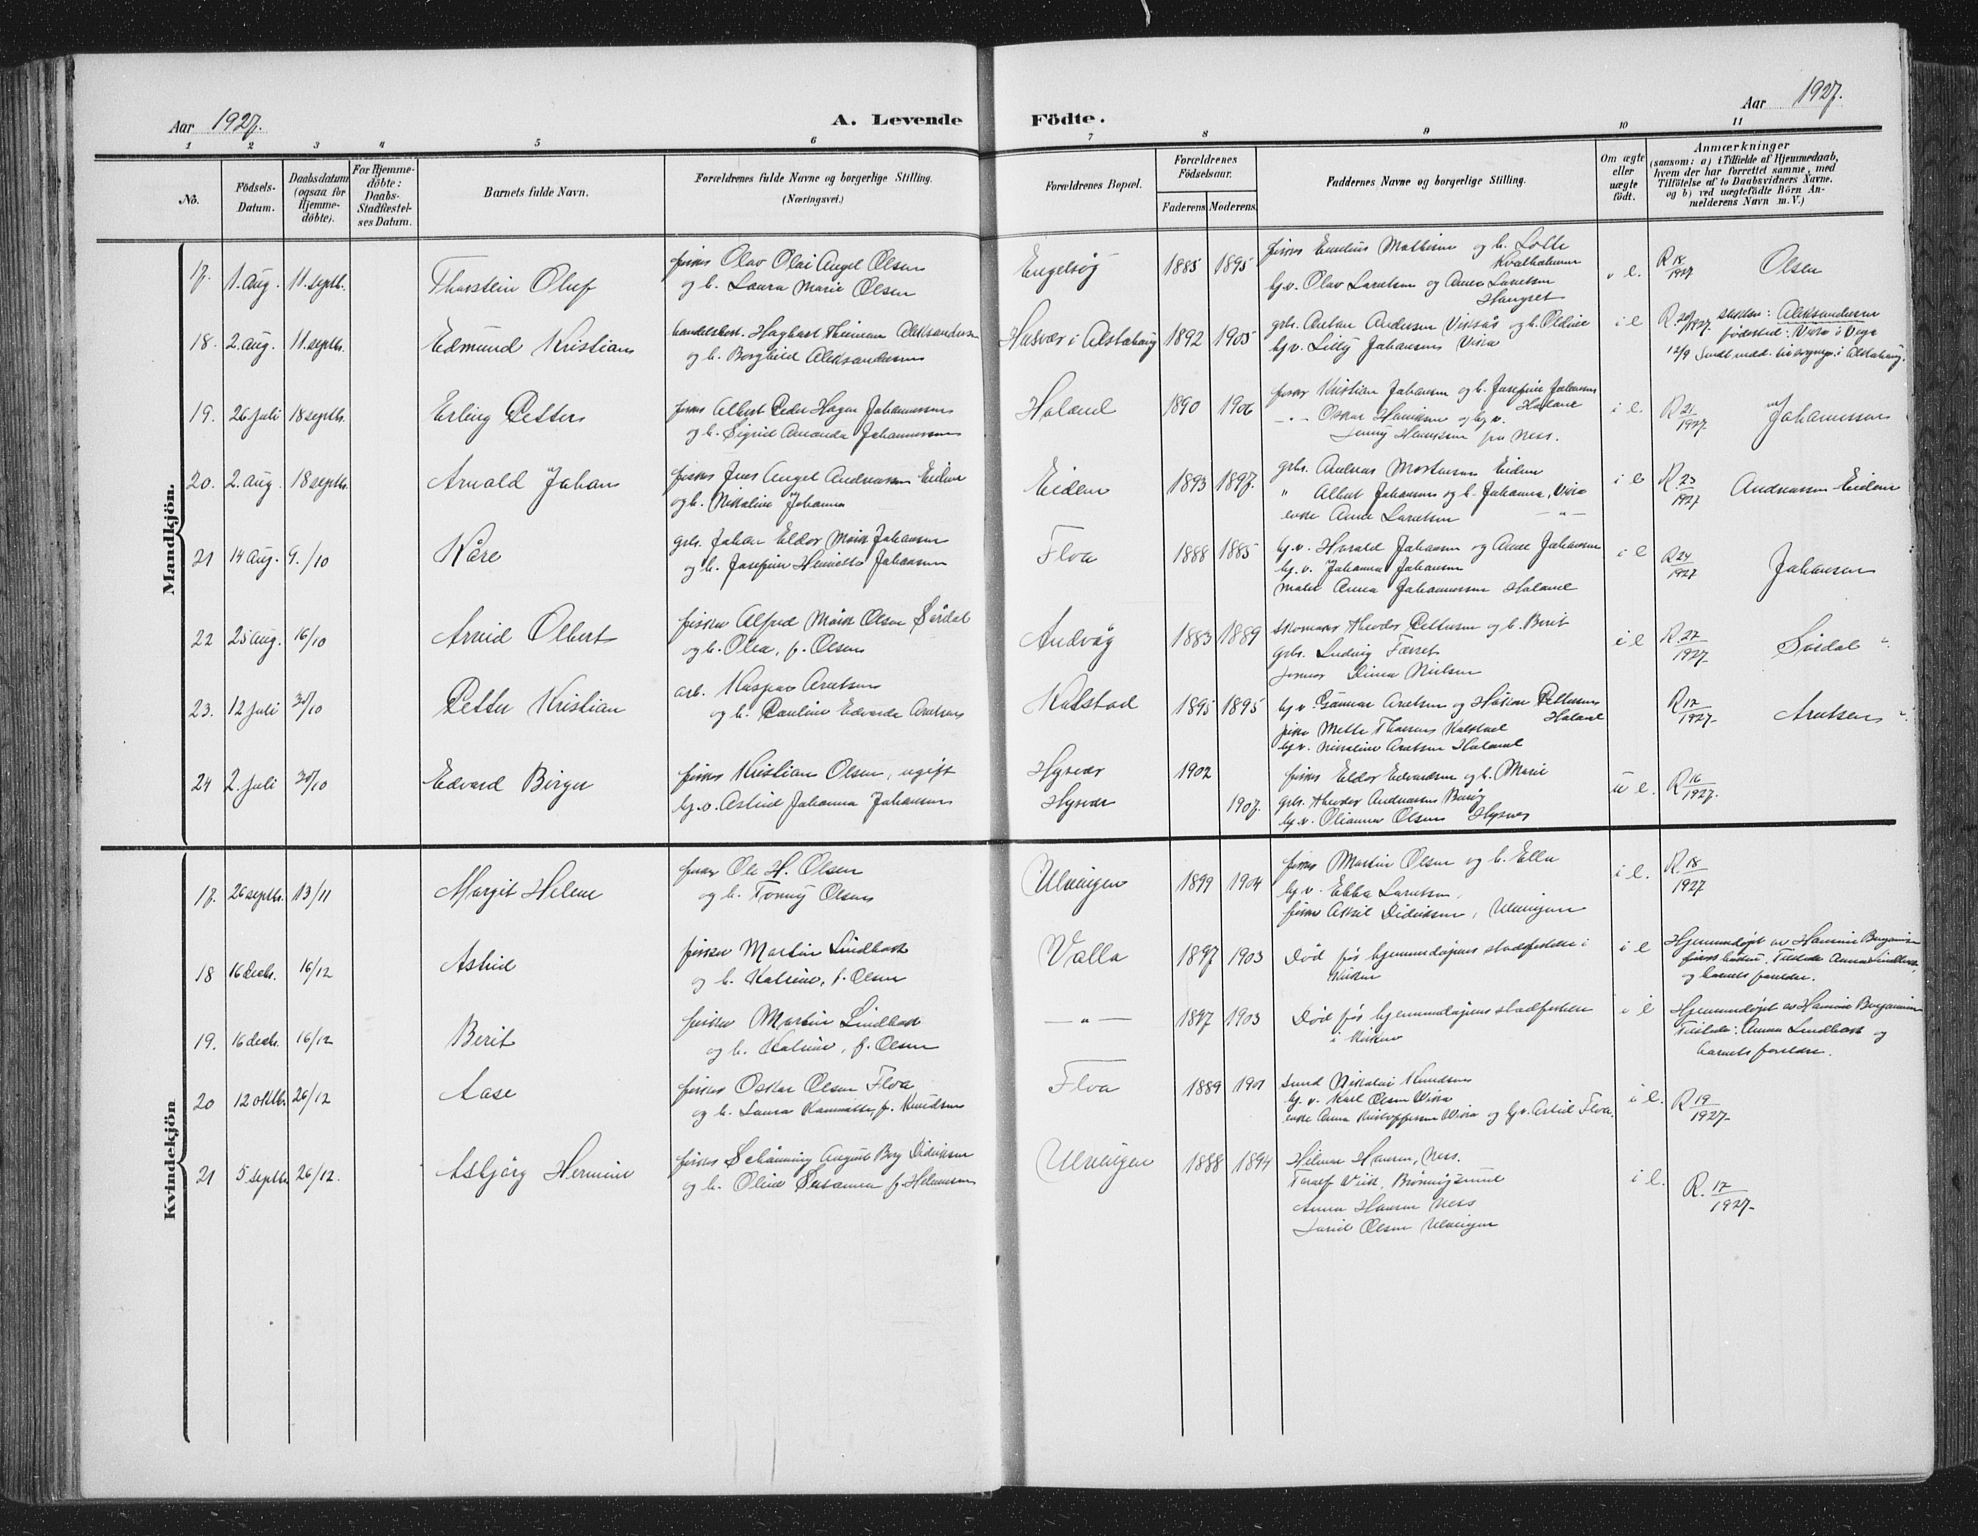 Aar 1927.
A. Levende Födte.
Aar 1927.
1 2 3 4 5 6 7 8 9 10 11
No.
Födsels-Datum.
Daabsdatum (ogsaa for Hjemme-döbte).
For Hjemme-döbte: Daabs-Stadfæstel-ses Datum.
Barnets fulde Navn.
Forældrenes fulde Navne og borgerlige Stilling.
(Næringsvei.)
Forældrenes Bopæl.
Forældrenes Födselsaar.
Faderens. Moderens.
Faddernes Navne og borgerlige Stilling.
Om ægte eller uægte födt.
Anmærkninger
(saasom: a) i Tilfælde af Hjemmedaab, hvem der har forrettet samme, med Tilföielse af to Daabsvidners Navne. og b) ved uægtefödte Börn An-melderens Navn m. V.)
Mandkjön.
17. 1. Aug. 11. septb. Thorstein Oluf
fisker Olav Olai Angel Olsen
og h. Laura Marie Olsen
Engelsøy 1885 1895
fisker Emelius Mathisen og h. Lotte
Kvalholmen
Olav Laretsen og Anna Laretsen
Hangset
e. R 18/1927 Olsen
18. 2. Aug. 11. septb. Edmund Kristian
handelsbest. Hagbart Aleksandersen
og h. Borghild Aleksandersen
Husvær i Alstahaug 1892 1905
grb. Anton Andersen Viksås og h. Oldine
Lilly Johansen Vika
i e R. 20/1927. slektsn: Aleksandersen
fødested: i Vega
12/9 Sendt i Alstahaug.
19. 26 juli 18 septb. Erling Petter
fisker Albert Peder Hagen Johannessen
og h. Sigrid Amanda Johannessen
Holand 1890 1906
fisker Kristian Johansen og h. Josefine Johansen
Holand
-"- Oskar og
Jenny fra Ness.
i e R 21/1927 Johannessen
20. 2. Aug. 18 septb. Arnold Johan
fisker Jens Angel Andreassen Eidem
og h. Nikoline Johanna
Eidem 1893 1897.
grb. Andreas Mortensen Eidem
" Albert Johansen og h. Johanna, Vika
enke Anna Laretsen -"-
i e R 23/1927 Andreassen Eidem
21 14 Aug. 9./10 Kåre
grb. Johan Eldor Mørk Johansen
og h. Josefine Henriette Johansen
Floa 1888 1885
Harald Johansen og Anne Johansen
Johanna Johansen
Anna Johannessen Holand
i e R 24/1927 Johansen
22 25 Aug. 16/10 Arvid Olbert
fisker Alfred Mørk Olsen Sørdal
og h. Olea, f. Olsen
Andvåg 1883 1889
skomaker Theodor Pettersen og h. Berit
grb. Ludvig Færset
Dina Nielsen
i e R. 27/1927.
23. 12 juli 30/10 Petter Kristian
arb. Kaspar Arntsen
og h. Pauline Edvarda Arntsen
Kalstad 1895 1895
Gunnar Arntsen og Håkon Pettersen
Holand
Mette Thorsen Kalstad
Nikoline Arntsen Holand
R 12/1927. Arntsen
24 2. juli 30/10 Edvard Birger
fisker Kristian Olsen, ugift
Astrid Johanna Johansen
Hysvær 1902
Hysvær 1907.
fisker Eldor Edvardsen og h. Marie
grb. Theodor Andreassen
Olianna Olsen Hysvær
u e. R 16/1927.
Kvindekjön
17. 26 septb. 13/11 Margit Helene
fisker Ole H. Olsen
og h. Tonny Olsen
Ulvingen 1899 1904
fisker Martin Olsen og h. Ella
Ebba Laretsen,
fisker Aksel Didriksen, Ulvingen
i e. R. 18/1927
18 16 decb. 16/12 Astrid
fisker Martin Lindbak
og h. Katrine, f. Olsen
Valla 1897 1903
Død før hjemmedåpens stadfestelse i
kirken
i e Hjemmedøpt av Hansine Benjaminsen
Tilstede Anna Lindbak,
og barnets foreldre.
19. 16 decb. 16/12 Berit
fisker Martin Lindbak
og h. Katrine, f. Olsen
-"- 1897 1903
Død før hjemmedåpens stadfestelse
i kirken
i e Hjemmedøpt av Hansine Benjaminsen
Tilstede: Anna Lindbak og
barnets foreldre.
20 12 oktb. 26/12 Aase
fisker Oskar Olsen Floa
og h. Laura, f. Knudsen
Floa 1889 1901
Nikolai Knudsen
Karl Olsen Vika
enke Anna Kristoffersen Vika og Astrid Floa.
i e. R 19/1927.
21 5 septb. 26/12. Asbjørg Hermine
fisker Schønning August Berg Didriksen
og h. Oline Susanna f. Helmersen
Ulvingen 1888 1894
Hilmar Hansen, Ness.
Toralf Vik, Brønnøysund
Anna Hansen Ness
Olsen Ulvingen
i e. R. 17/1927.